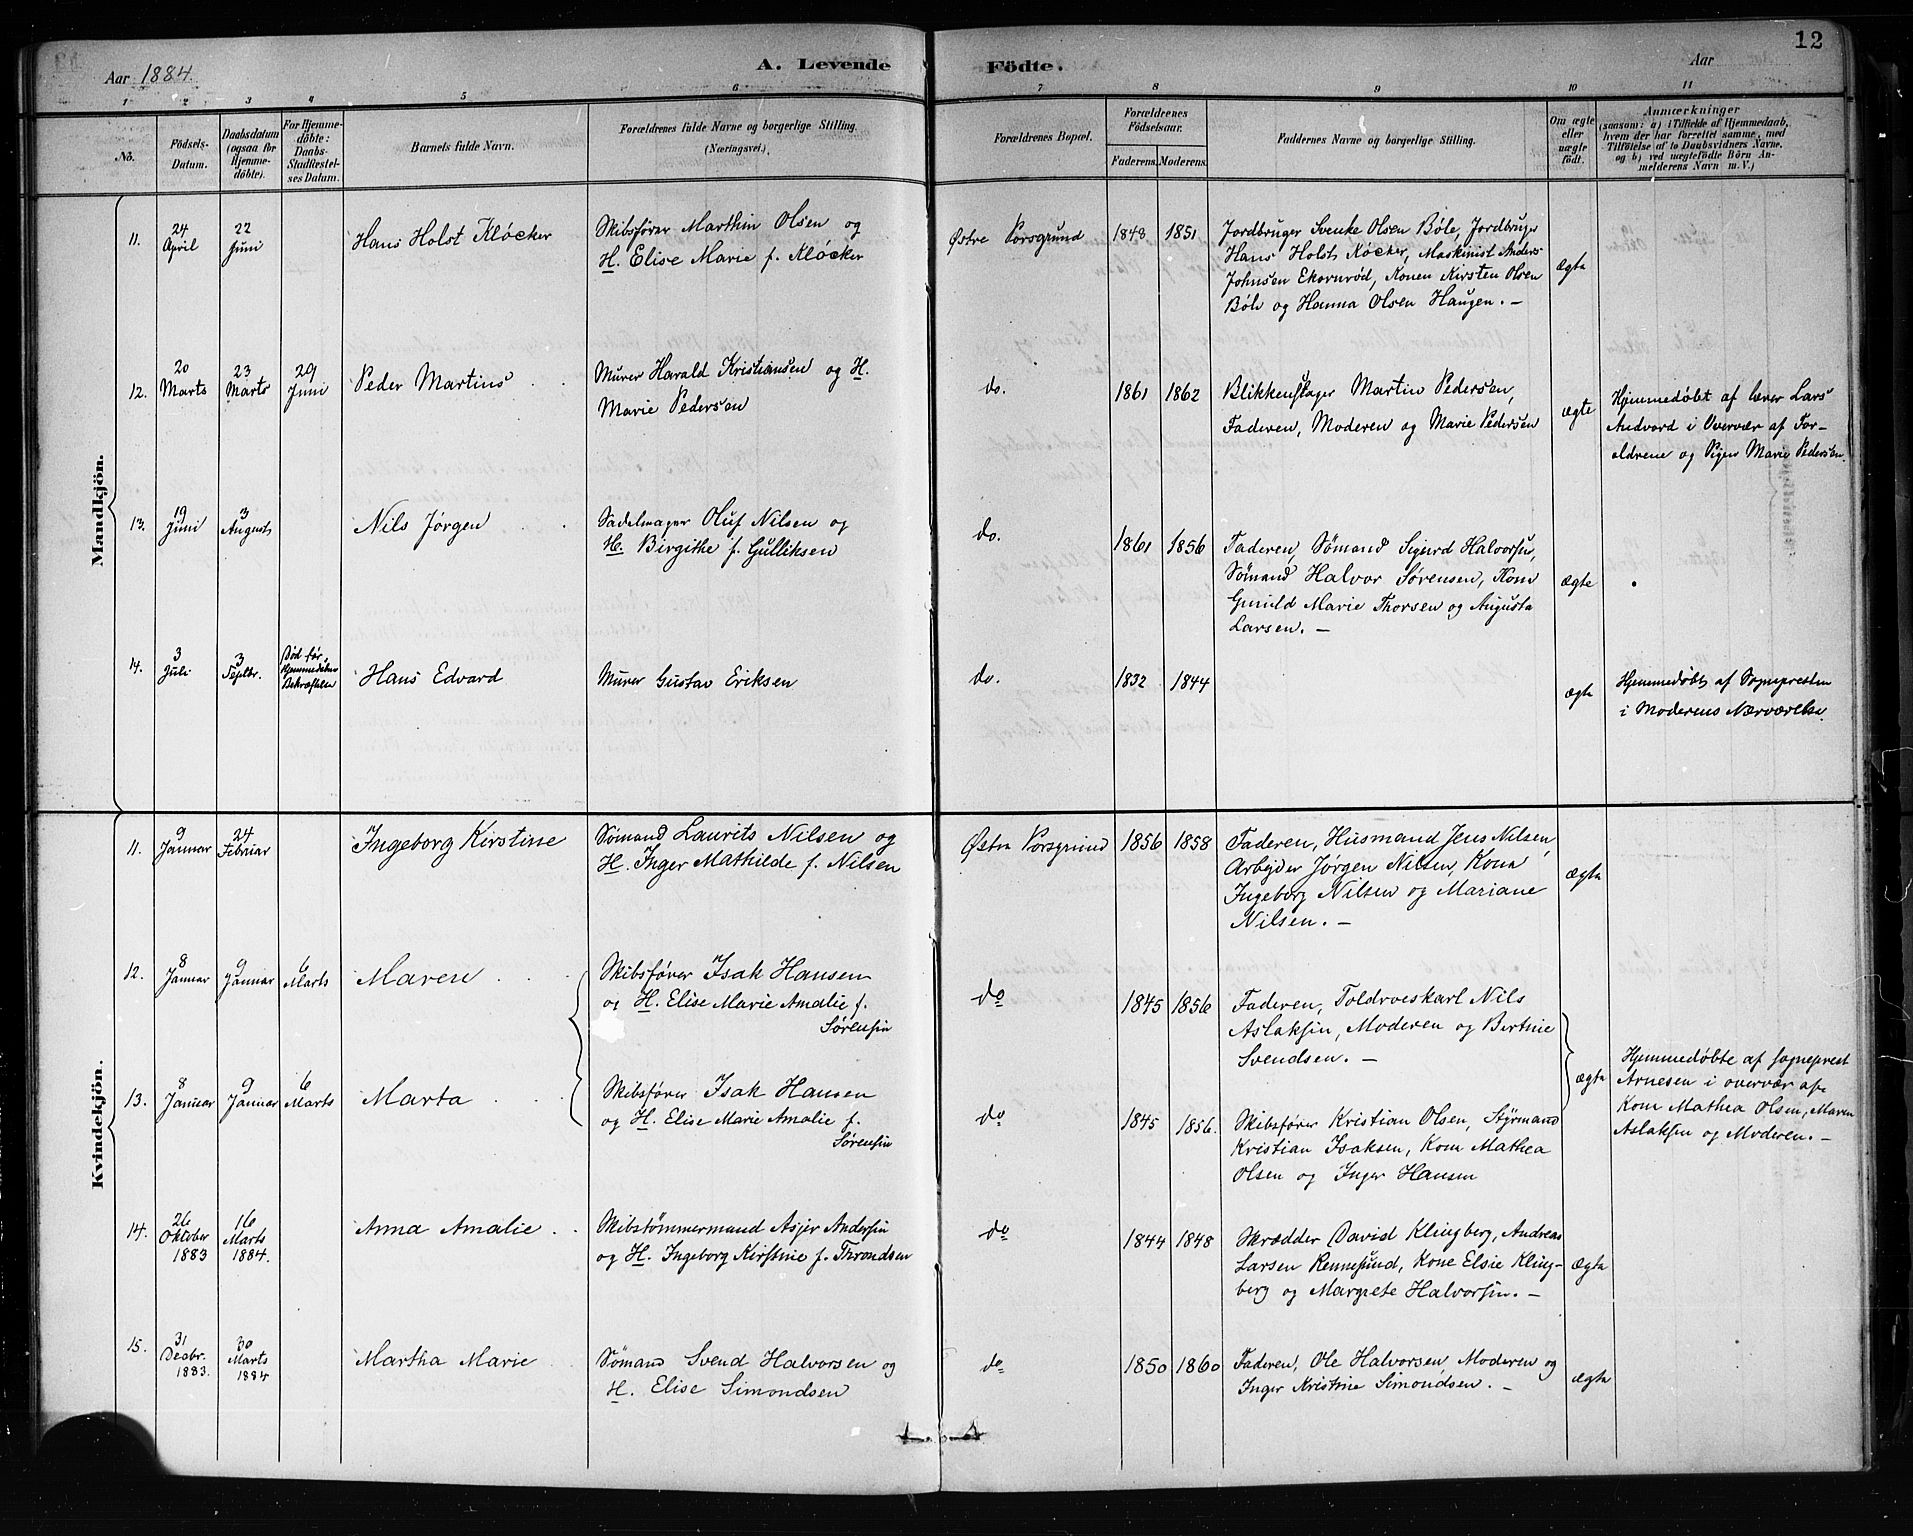 12
Aar 1884.
A. Levende Födte.
Aar
1 2 3 4 5 6 7 8 9 10 11
No.
Födsels-
Datum.
Daabsdatum
(ogsaa for
Hjemme-
döbte).
For Hjemme-
döbte:
Daabs-
Stadfæstel-
ses Datum.
Barnets fulde Navn.
Forældrenes fulde Navne og borgerlige Stilling.
(Næringsvei.)
Forældrenes Bopæl.
Forældrenes
Födselsaar.
Faderens. Moderens.
Faddernes Navne og borgerlige Stilling.
Om ægte
eller
uægte
födt.
Anmærkninger
(saasom: a) i Tilfælde af Hjemmedaab,
hvem der har forrettet samme, med
Tilföielse af to Daabsvidners Navne.
og b) ved uægtefödte Börn An-
melderens Navn m. V.)
Mandkjön.
11.
24
April
22
Juni
Hans Holst Kløcker
Skibsfører Marthin Olsen og
H. Elise Marie f. Kløcker
Østre Porsgrund
1848
1851
Jordbruger Svenke Olsen Bøle, Jordbruger
Hans Holst Køcker, Maskinist Anders
Johnsen Ekornrød, Konen Kirsten Olsen
Böle og Hanna Olsen Haugen. —
ægte
12.
20
Marts
23
Marts
29
Juni
Peder Martins
Murer Harald Kristiansen og H.
Marie Pedersen
do.
1861
1862
Blikkenslager Martin Pedersen,
Faderen, Moderen og Marie Pedersen
ægte
Hjemmedøbt af lærer Lars
Andvord i Overvær af For-
ældrene og Pigen Marie Pedersen.
13.
19
Juni
3
August
Nils Jørgen
Sadelmager Oluf Nilsen og
H. Birgithe f. Gulliksen
do.
1861
1856
Faderen, Sømand Sigurd Halvorsen,
Sømand Halvor Sørensen, Kone
Gunild Marie Thorsen og Augusta
Larsen. —
ægte
14.
3
Juli
3
Septbr.
Død før
Hjemmedøbens
Bekræftelse
Hans Edvard
Murer Gustav Eriksen
do.
1832
1844
ægte
Hjemmedøbt af Sognepresten
i Moderens Nærværelse.
Kvindekjön.
11.
9
Januar
24
Februar
Ingeborg Kirstine
Sømand Laurits Nilsen og
H. Inger Mathilde f. Nilsen
Østre Porsgrund
1856
1858
Faderen, Husmand Jens Nilsen,
Arbejder Jørgen Nilsen, Kone
Ingeborg Nilsen og Mariane
Nilsen. —
ægte
12.
8
Januar
9
Januar
6
Marts
Maren
Skibsfører Isak Hansen
og H. Elise Marie Amalie f.
Sørensen
do
1845
1856
Faderen, Toldroeskarl Nils
Aslaksen, Moderen og Bertine
Svendsen. —
ægte
Hjemmedøbte af sogneprest
Arnesen i overvær af
Kone Mathea Olsen, Maren
Aslaksen og Moderen. —
13.
8
Januar
9
Januar
6
Marts
Marta
Skibsfører Isak Hansen
og H. Elise Marie Amalie f.
Sørensen
do
1845
1856.
Skibsfører Kristian Olsen, Styrmand
Kristian Isaksen, Kone Mathea
Olsen og Inger Hansen
14.
26
Oktober
1883
16
Marts
1884.
Anna Amalie
Skibstømmermand Asjer Andersen
og H. Ingeborg Kirstine f. Throndsen
do
1844
1848
Skrædder David Klingberg, Andreas
Larsen Rennesund, Kone Elsie Kling-
berg og Margrete Halvorsen. —
ægte
15.
31
Decbr.
1883.
30
Marts
1884
Martha Marie
Sømand Svend Halvorsen og
H. Elise Simondsen
do
1850
1860
Faderen, Ole Halvorsen, Moderen og
Inger Kristine Simondsen. —
ægte